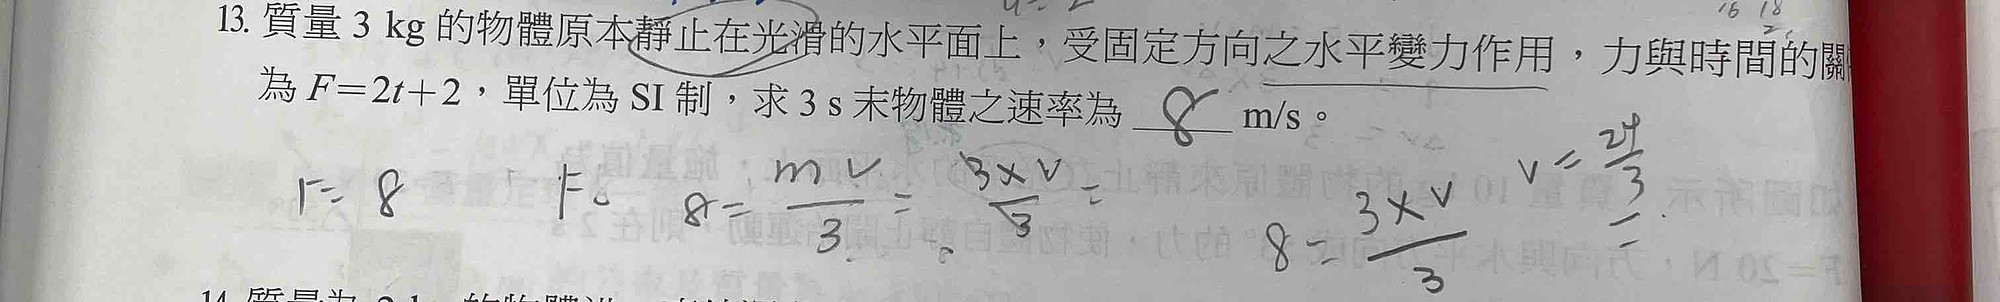 16 18
13. 質量 3 kg 的物體原本靜止在光滑的水平面上，受固定方向之水平變力作用，力與時間的關
為 F＝2t＋2，單位為 SI 制，求 3 s 末物體之速率為 8 m/s。
F= 8 F= 8= mv/3 = 3×v/3 = 8= 3×v/3 v= 24/3 =